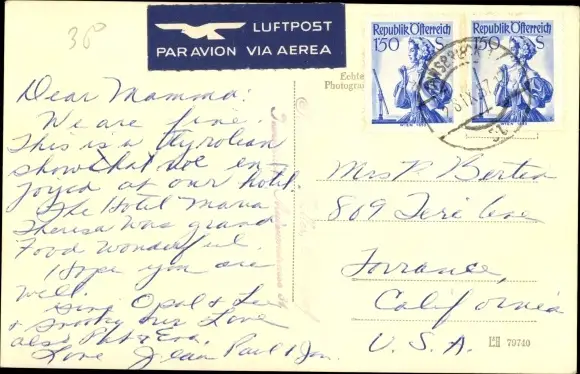 30
LUFTPOST
PAR AVION VIA AEREA
Republik Österreich
1'50 S
WIEN
Republik Österreich
1'50 S
WIEN
Echte
Photogra
Dear Mamma:
We are fine.
This is a Tyrolian
show that we en
joyed at our hotel.
The Hotel Maria
Theresa was grand
Food wonderful.
Hope you are
well.
Give Opal & Lee
& Snooky our Love
also Pat & Eva.
Love Jean Paul & Jan.
Mrs P. Berten
809 Teri Ave
Torrance,
California
U. S. A.
79740